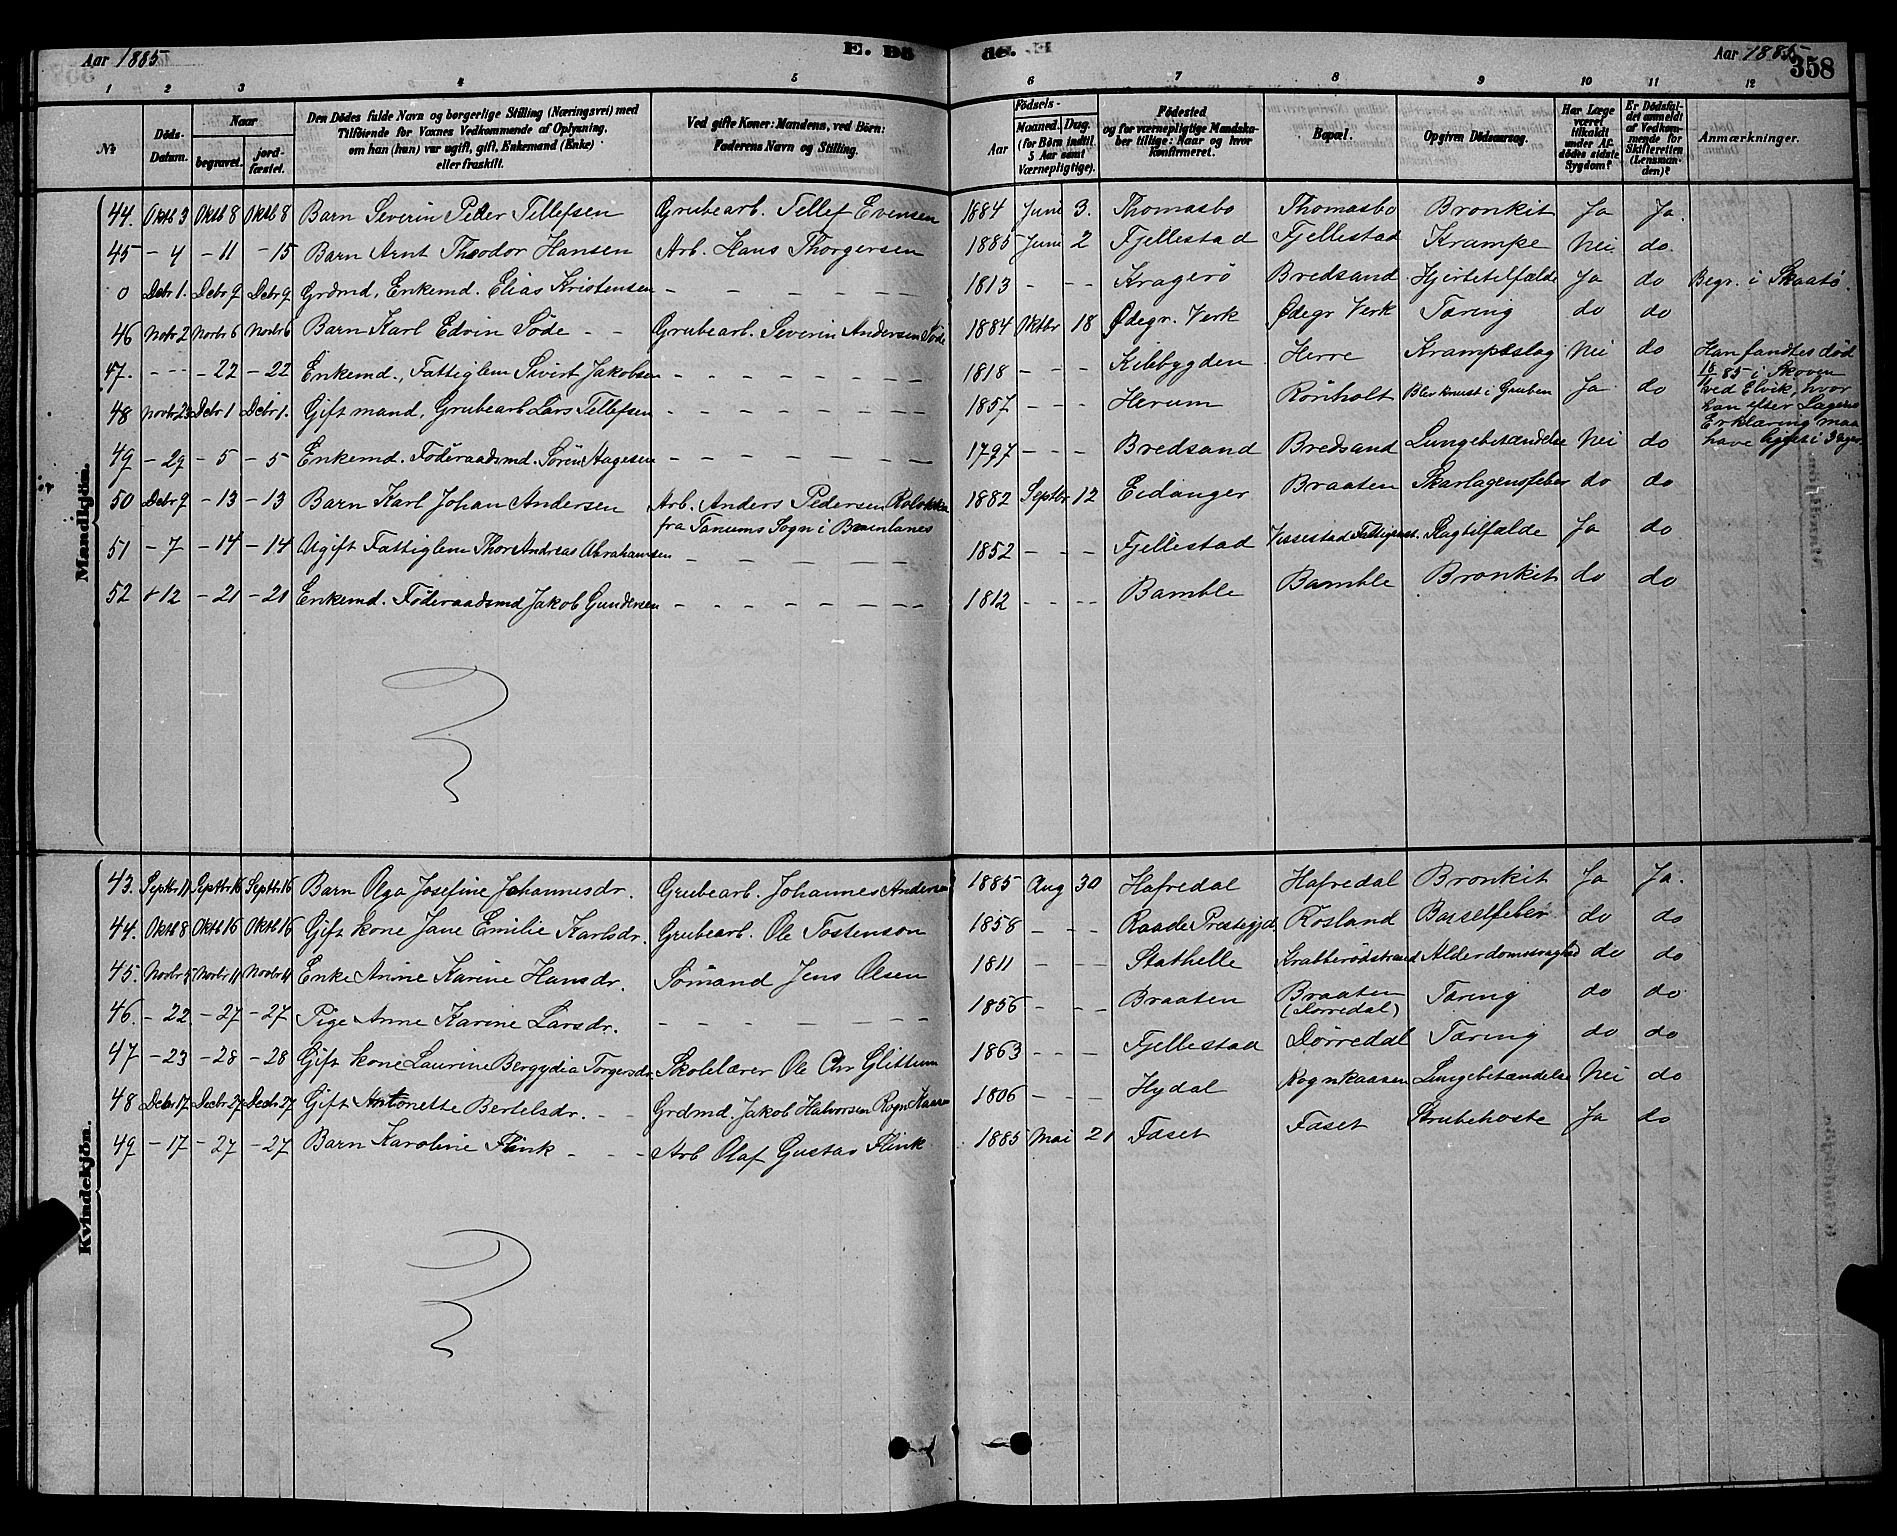 Aar 1885 E. Dö de. Aar 1885 358
1 2 3 4 5 6 7 8 9 10 11 12
№ Döds-Datum. Naar begravet. jordfæstet. Den Dödes fulde Navn og borgerlige Stilling (Næringsvei) med Tilföiende for Voxnes Vedkommende af Oplysning, om han (hun) var ugift, gift, Enkemand (Enke) eller fraskilt. Ved gifte Koner: Mandens, ved Börn: Faderens Navn og Stilling. Födsels- Aar Maaned. Dag. (for Börn indtil 5 Aar samt Værnepligtige). Födested og for værnepligtige Mandskaber tillige: Naar og hvor konfirmeret. Bopæl. Opgiven Dödsaarsag. Har Læge været tilkaldt under Afdödes sidste Sygdom? Er Dödsfaldet anmeldt af Vedkommende for Skifteretten (Lensmanden)? Anmærkninger.
Mandkjön.
44. Oktb 3 Oktb 8 Oktb 8 Barn Severin Peder Tellefsen Grubearb. Tellef Evensen 1884 Juni 3. Thomasbo Thomasbo Bronkit Ja Ja.
45 - 4 - 11 - 15 Barn Arnt Theodor Hansen Arb. Hans Thorgersen 1885 Juni 2 Fjellestad Fjellestad Krampe Nei do.
0 Debr 1. Debr 9 Debr 9 Grdmd, Enkemd. Elias Kristensen - - - - 1813 - - - Kragerö Bredsand Hjertetilfælde Ja do Begr. i Skaatö.
46 Novbr 2 Novbr 6 Novbr 6 Barn Karl Edvin Söde - - Grubearb. Severin Andersen Söde 1884 Oktbr 18 Ødegr. Verk Ødegr Verk Tæring do do
47. - - - - 22 - 22 Enkemd., Fattiglem Sivert Jakobsen - - - - 1818 - - - Kilebygden Herre Krampeslag Nei do Han fandtes död
16/11 85 i Skoven
ved Elvik, hvor
han efter Lægens
Erklæring maa
have ligget i 3 dager
48 Novbr 23 Debr 1 Debr 1. Gift mand, Grubearb Lars Tellefsen - - - - 1857 - - - Herum Rönholt Blev knust i Gruben Ja do
49 - 29 - 5 - 5 Enkemd. Föderaadsmd. Sören Aagesen - - - - 1797 - - - Bredsand Bredsand Lungebetændelse Nei do
50 Debr 9 - 13 - 13 Barn Karl Johan Andersen Arb. Anders Pedersen
fra Tanums Sogn i Brunlanes 1882 Septbr 12 Eidanger Braaten Skarlagensfeber do do
51 - 7 - 14 - 14 Ugift Fattiglem Thor Andreas Abrahamsen - - - - 1852 - - - Fjellestad Vissestad Slagtilfælde Ja do
52 + 12 - 21 - 21 Enkemd. Föderaadsmd Jakob Gundersen - - - - 1812 - - - Bamble Bamble Bronkit do do
Kvindekjön.
43. Septbr 11 Septbr 16 Septbr 16 Barn Olga Josefine Johannesdr. Grubearb. Johannes Andersen 1885 Aug 30 Hafredal Hafredal Bronkit Ja Ja.
44. Oktb 8 Oktb 16 Oktb 16 Gift kone Jane Emilie Karlsdr. Grubearb. Ole Tostenson 1858 - - - Raade Prestegjd Rosland Barselfeber do do
45. Novbr 5 Novbr 11 Novbr 11 Enke Anne Karine Hansdr. Sömand Jens Olsen 1811 - - - Stathelle Krabberödstrand Alderdomssvaghed do do
46. - 22 - 27 - 27 Pige Anne Karine Larsdr. - - - - 1856 - - - Braaten Braaten
(Dorredal) Tæring do do
47 - 23 - 28 - 28 Gift kone Laurine Bergydia Torgersdr. Skolelærer Ole Chr Glittum 1863 - - - Fjellestad Dörredal Tæring do do
48 Debr 17 Decbr 27 Decbr 27 Gift Antonette Bertelsdr. - - Grdmd. Jakob Halvorsen Rognkaasen 1806 - - - Hydal Rognkaasen Lungebetændelse Nei do
49 - 17 - 27 - 27 Barn Karoline Flink - - - Arb Olaf Gustav Flink 1885 Mai 21 Faset Faset Strubehoste Ja do